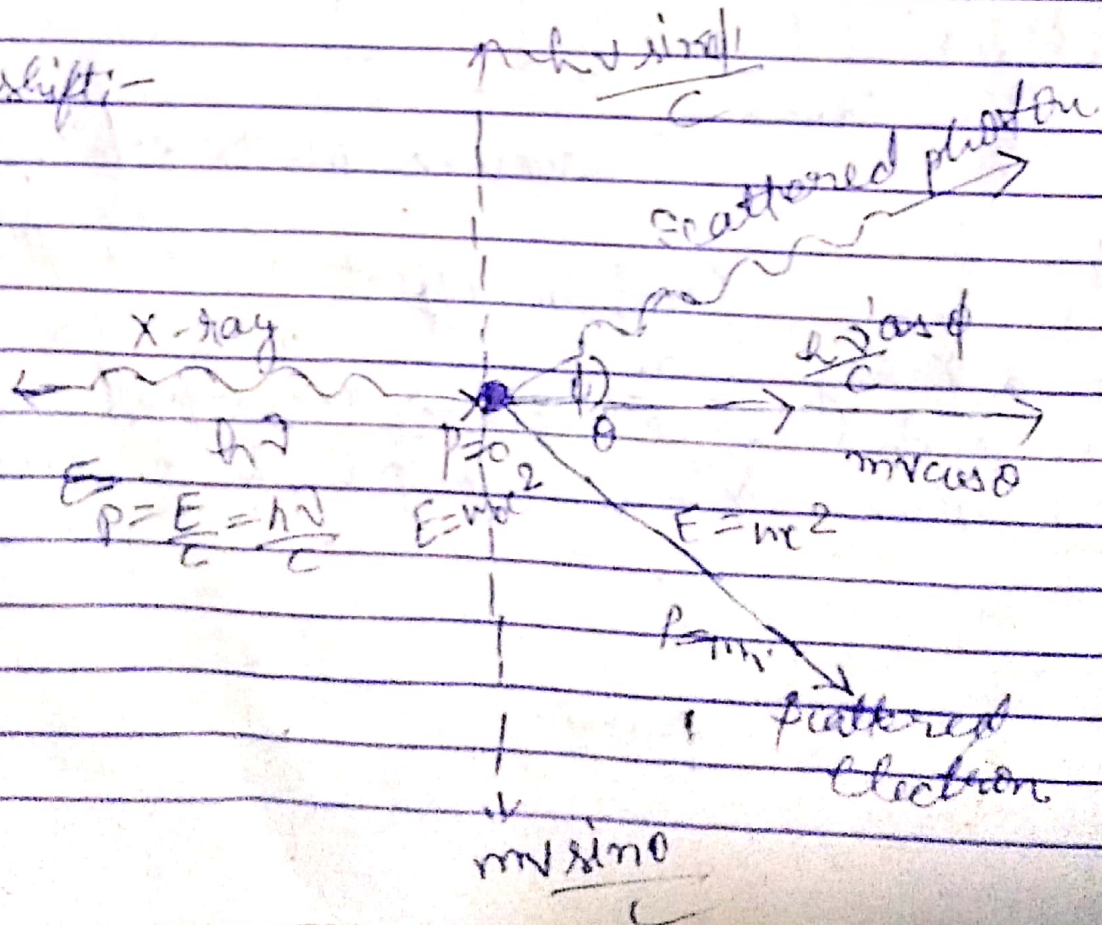 shift:-
hν sinφ
C
scattered photon
X-ray
hν' cosφ
C
φ
hν
P=0
θ
mvcosθ
E=
P=E/C=hν/C
E=m₀c²
E=mc²
P=mv
scattered
electron
mv sinθ
C